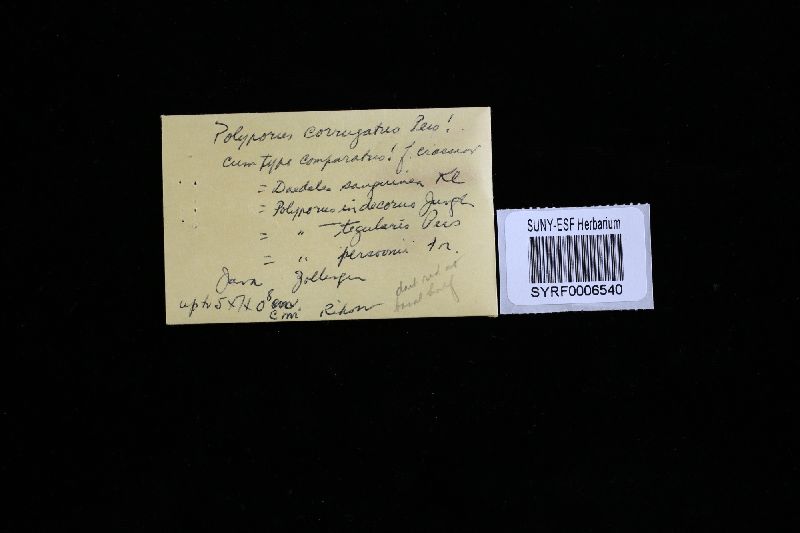 Polyporus corrugatus Pers!
cum type comparatus! f. crassior
= Daedalea sanguinea Kl
= Polyporus indecorus Jungh
= " tegularis Pers
= " persoonii Fr.
Java Zollinger
up to 5 x 7 x 0.8 cm. Ridson
dark red at
basal half
SUNY-ESF Herbarium
SYRF0006540